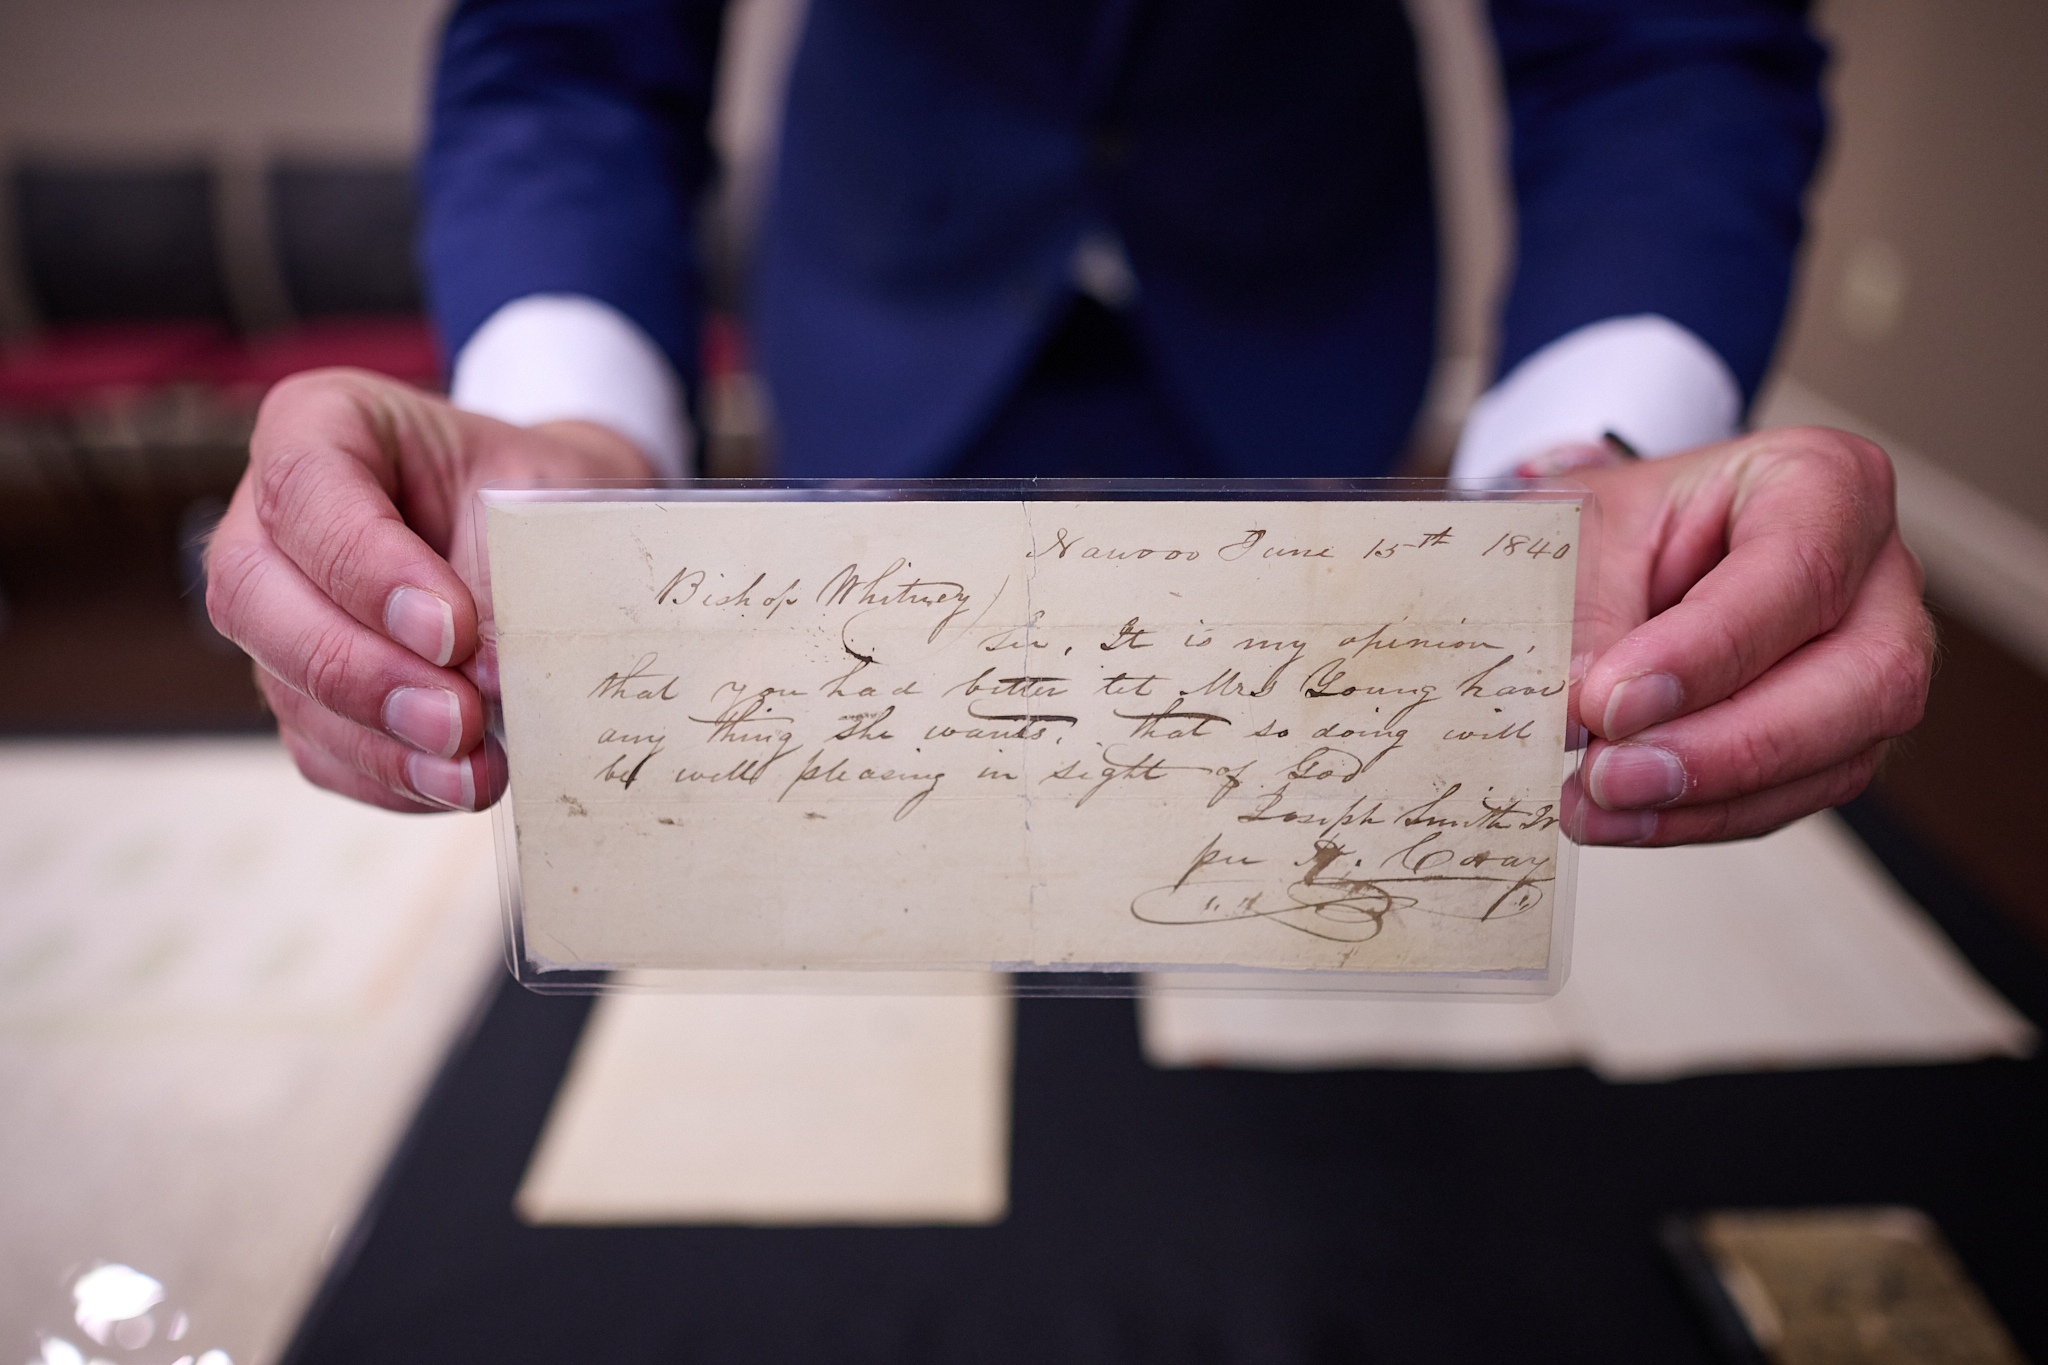 Nauvoo June 15th 1840
Bishop Whitney
Sir, It is my opinion,
that you had better let Mrs Young have
any thing she wants. that so doing will
be well pleasing in sight of God
Joseph Smith Jr
per H. Coray